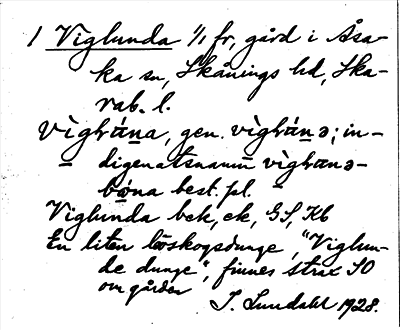 1 Viglunda 1/1 fr, gård i Åsa-
ka sn, Skånings hd, Ska-
rab. l.
vìgłråna, gen. vìgłrånə; in-
digenatsnamn vìgłranə-
bóna best. pl.
Viglunda bek, ek, GS, Kb
En liten löskogsdunge, "Viglun-
de dunge", finnes strax SO
om gården
I. Lundahl 1928.